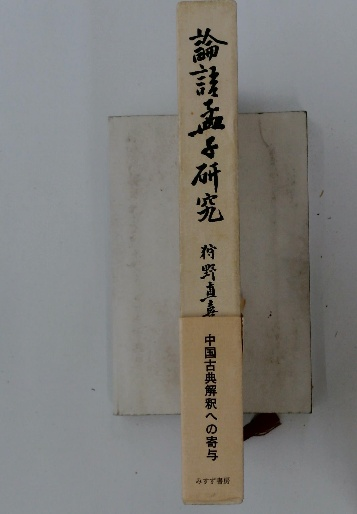 論語孟子研究
狩野直喜
中国古典解釈への寄与
みすず書房